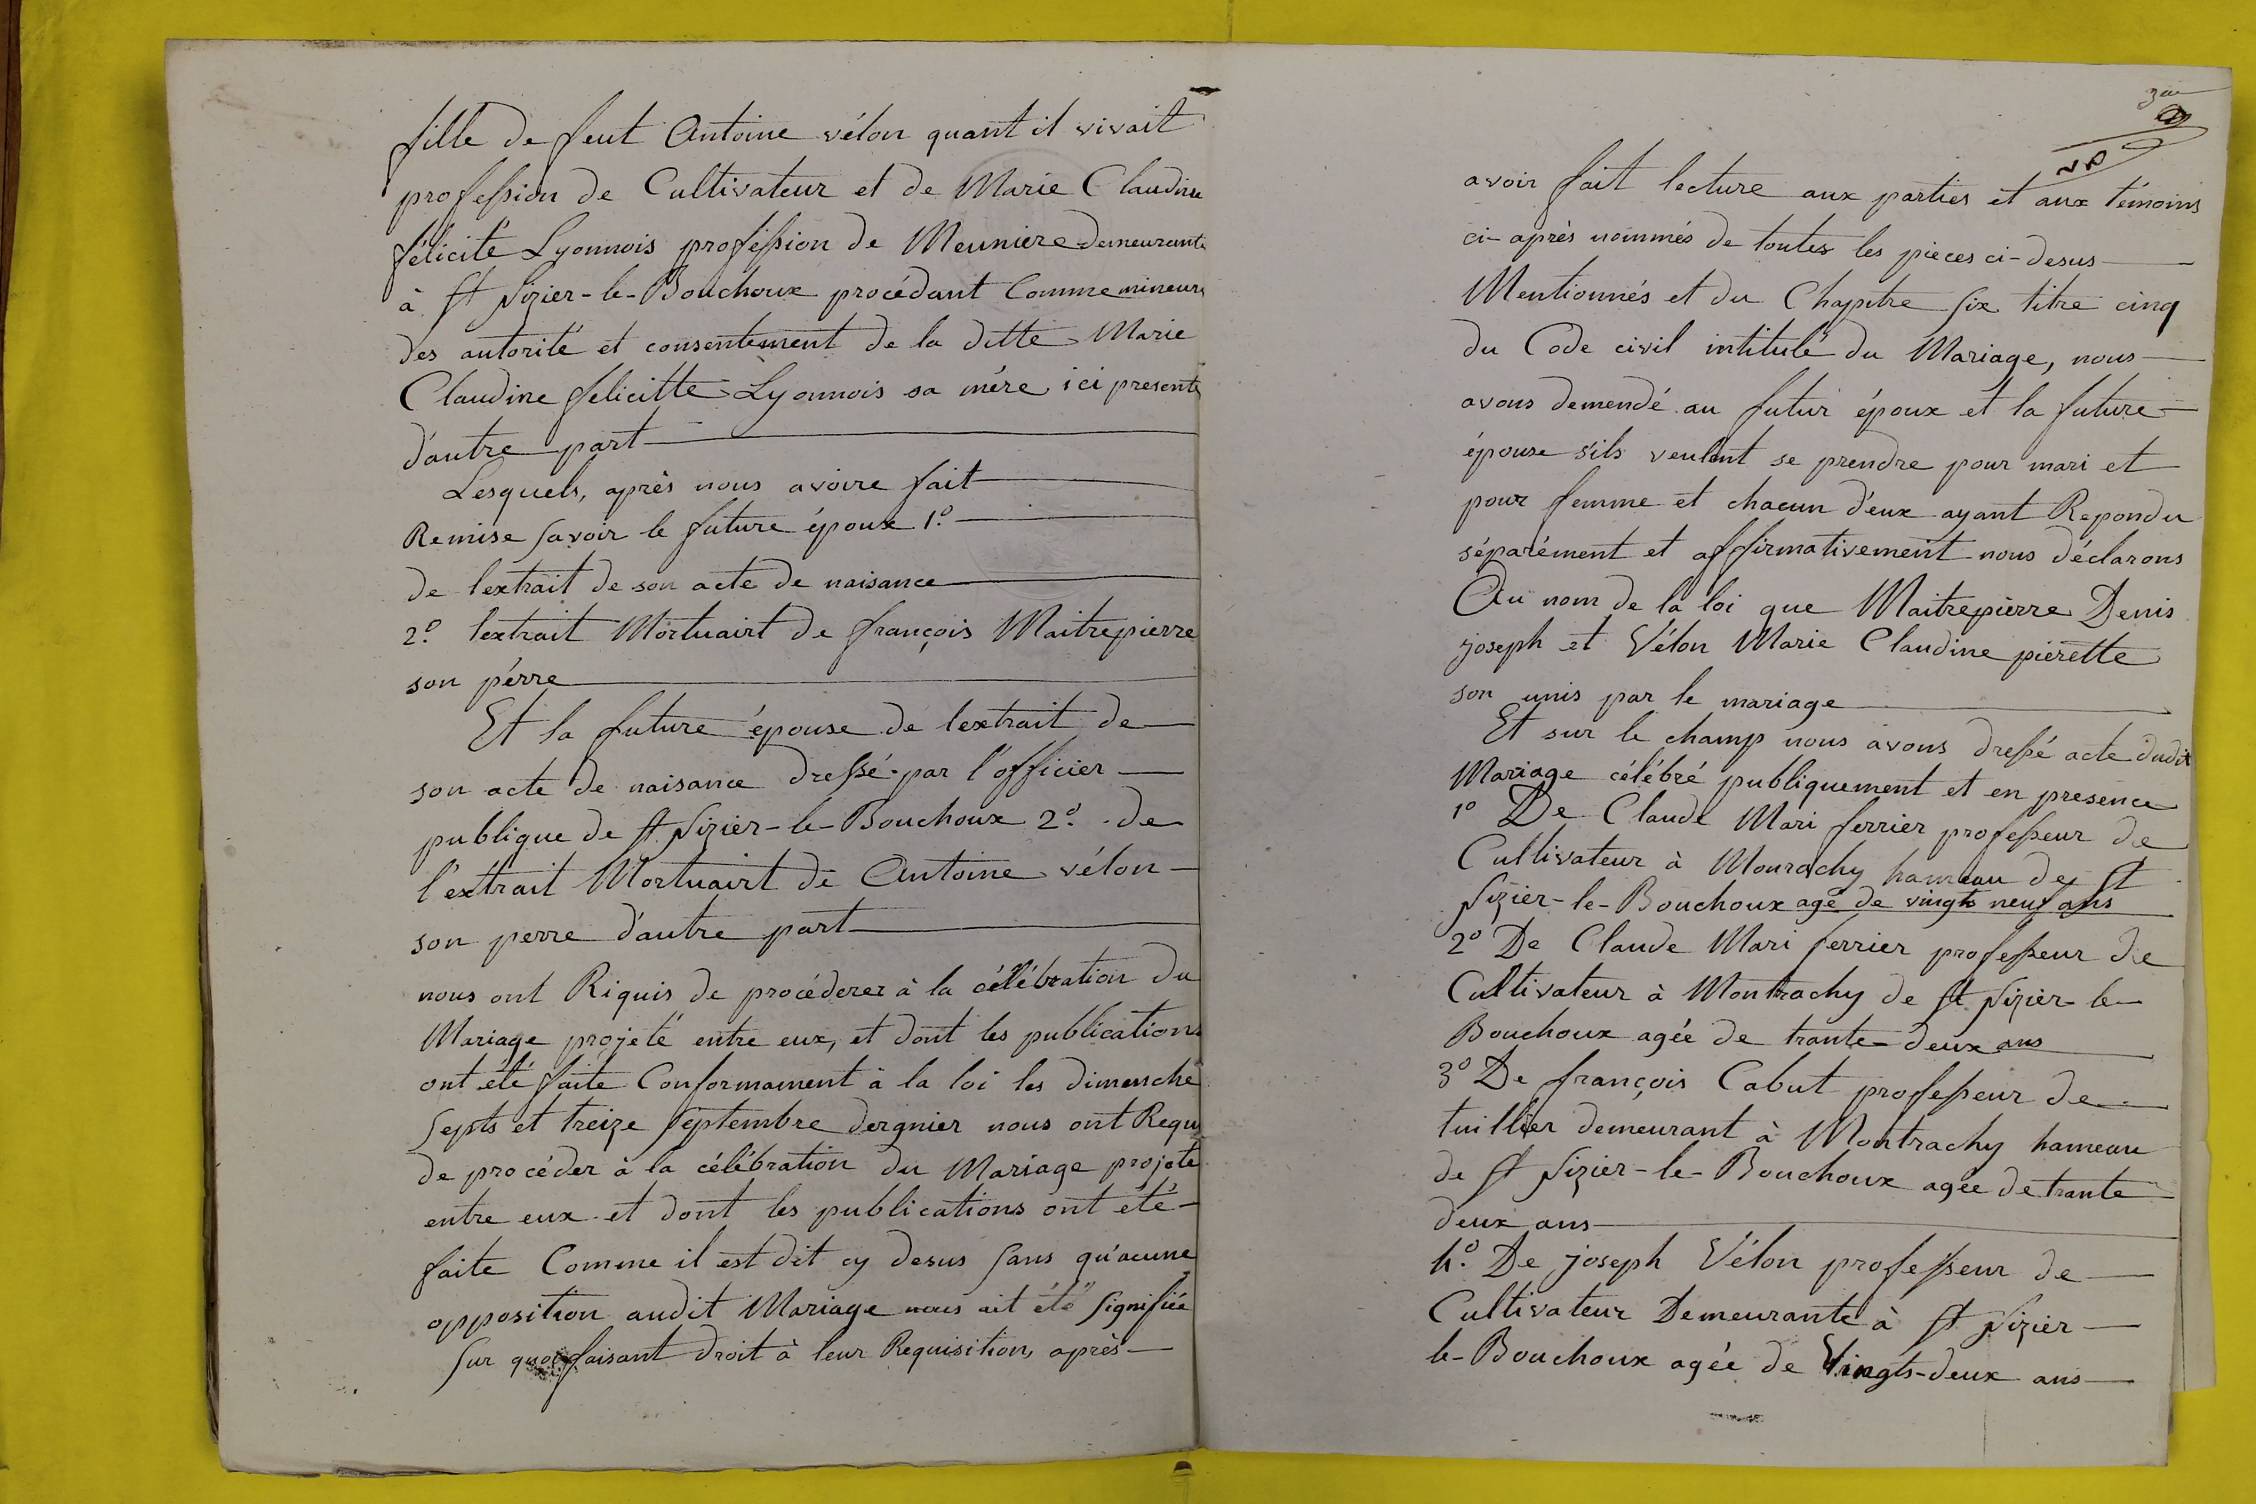 fille de feut Antoine vélon quant il vivait
profession de Cultivateur et de Marie Claudine
félicité Lyonnois proféssion de Meuniere demeurante
à St Nizier-le-Bouchoux procédant Comme mineure
des autorité et consentement de la ditte Marie
Claudine felicitte Lyonnois sa mére ici presente
d'autre part
Lesquels, après nous avoire fait
Remise savoir le future époux 1.º
de lextrait de son acte de naisance
2.º lextrait Mortuairt de françois Maitrepierre
son pérre
Et la future épouse de lextrait de
son acte de naisance dressé par l'officier
publique de St Nizier-le-Bouchoux 2.º de
l'extrait Mortuairt de Antoine vélon
son perre d'autre part
nous ont Riquis de procéderer à la célébration du
Mariage projeté entre eux, et dont les publications
ont été faite Conformament à la loi les dimensche
septs et treize septembre dergnier nous ont Requi
de procéder à la célébration du Mariage projeté
entre eux et dont les publications ont été
faite Comme il est dit cy desus sans qu'acune
opposition audit Mariage nous ait été signifiée
sur quoi faisant droit à leur Requisition, après
avoir fait lecture aux parties et aux témoins
ci-après nommés de toutes les pieces ci-desus
Mentionnés et du Chapitre six titre cinq
du Code civil intitulé du Mariage, nous
avons demendé au futur époux et la future
épouse s'ils veulent se prendre pour mari et
pour femme et chacun d'eux ayant Repondu
séparément et affirmativement nous déclarons
Au nom de la loi que Maitrepierre Denis
joseph et Vélon Marie Claudine pierette
son unis par le mariage
Et sur le champ nous avons dressé acte dudit
Mariage célébré publiquement et en presence
1º De Claude Mari ferrier professeur de
Cultivateur à Mourachy hameau de St
Nizier-le-Bouchoux agé de vingts neuf ans
2º De Claude Mari ferrier professeur de
Cultivateur à Montrachy de St Nizier-le-
Bouchoux agée de trante-deux ans
3º De françois Cabut professeur de
tuillier demeurant à Montrachy hameau
de St Nizier-le-Bouchoux agée de trante
deux ans
4.º De joseph Vélon professeur de
Cultivateur Demeurante à St Nizier
le-Bouchoux agée de Vingts-deux ans